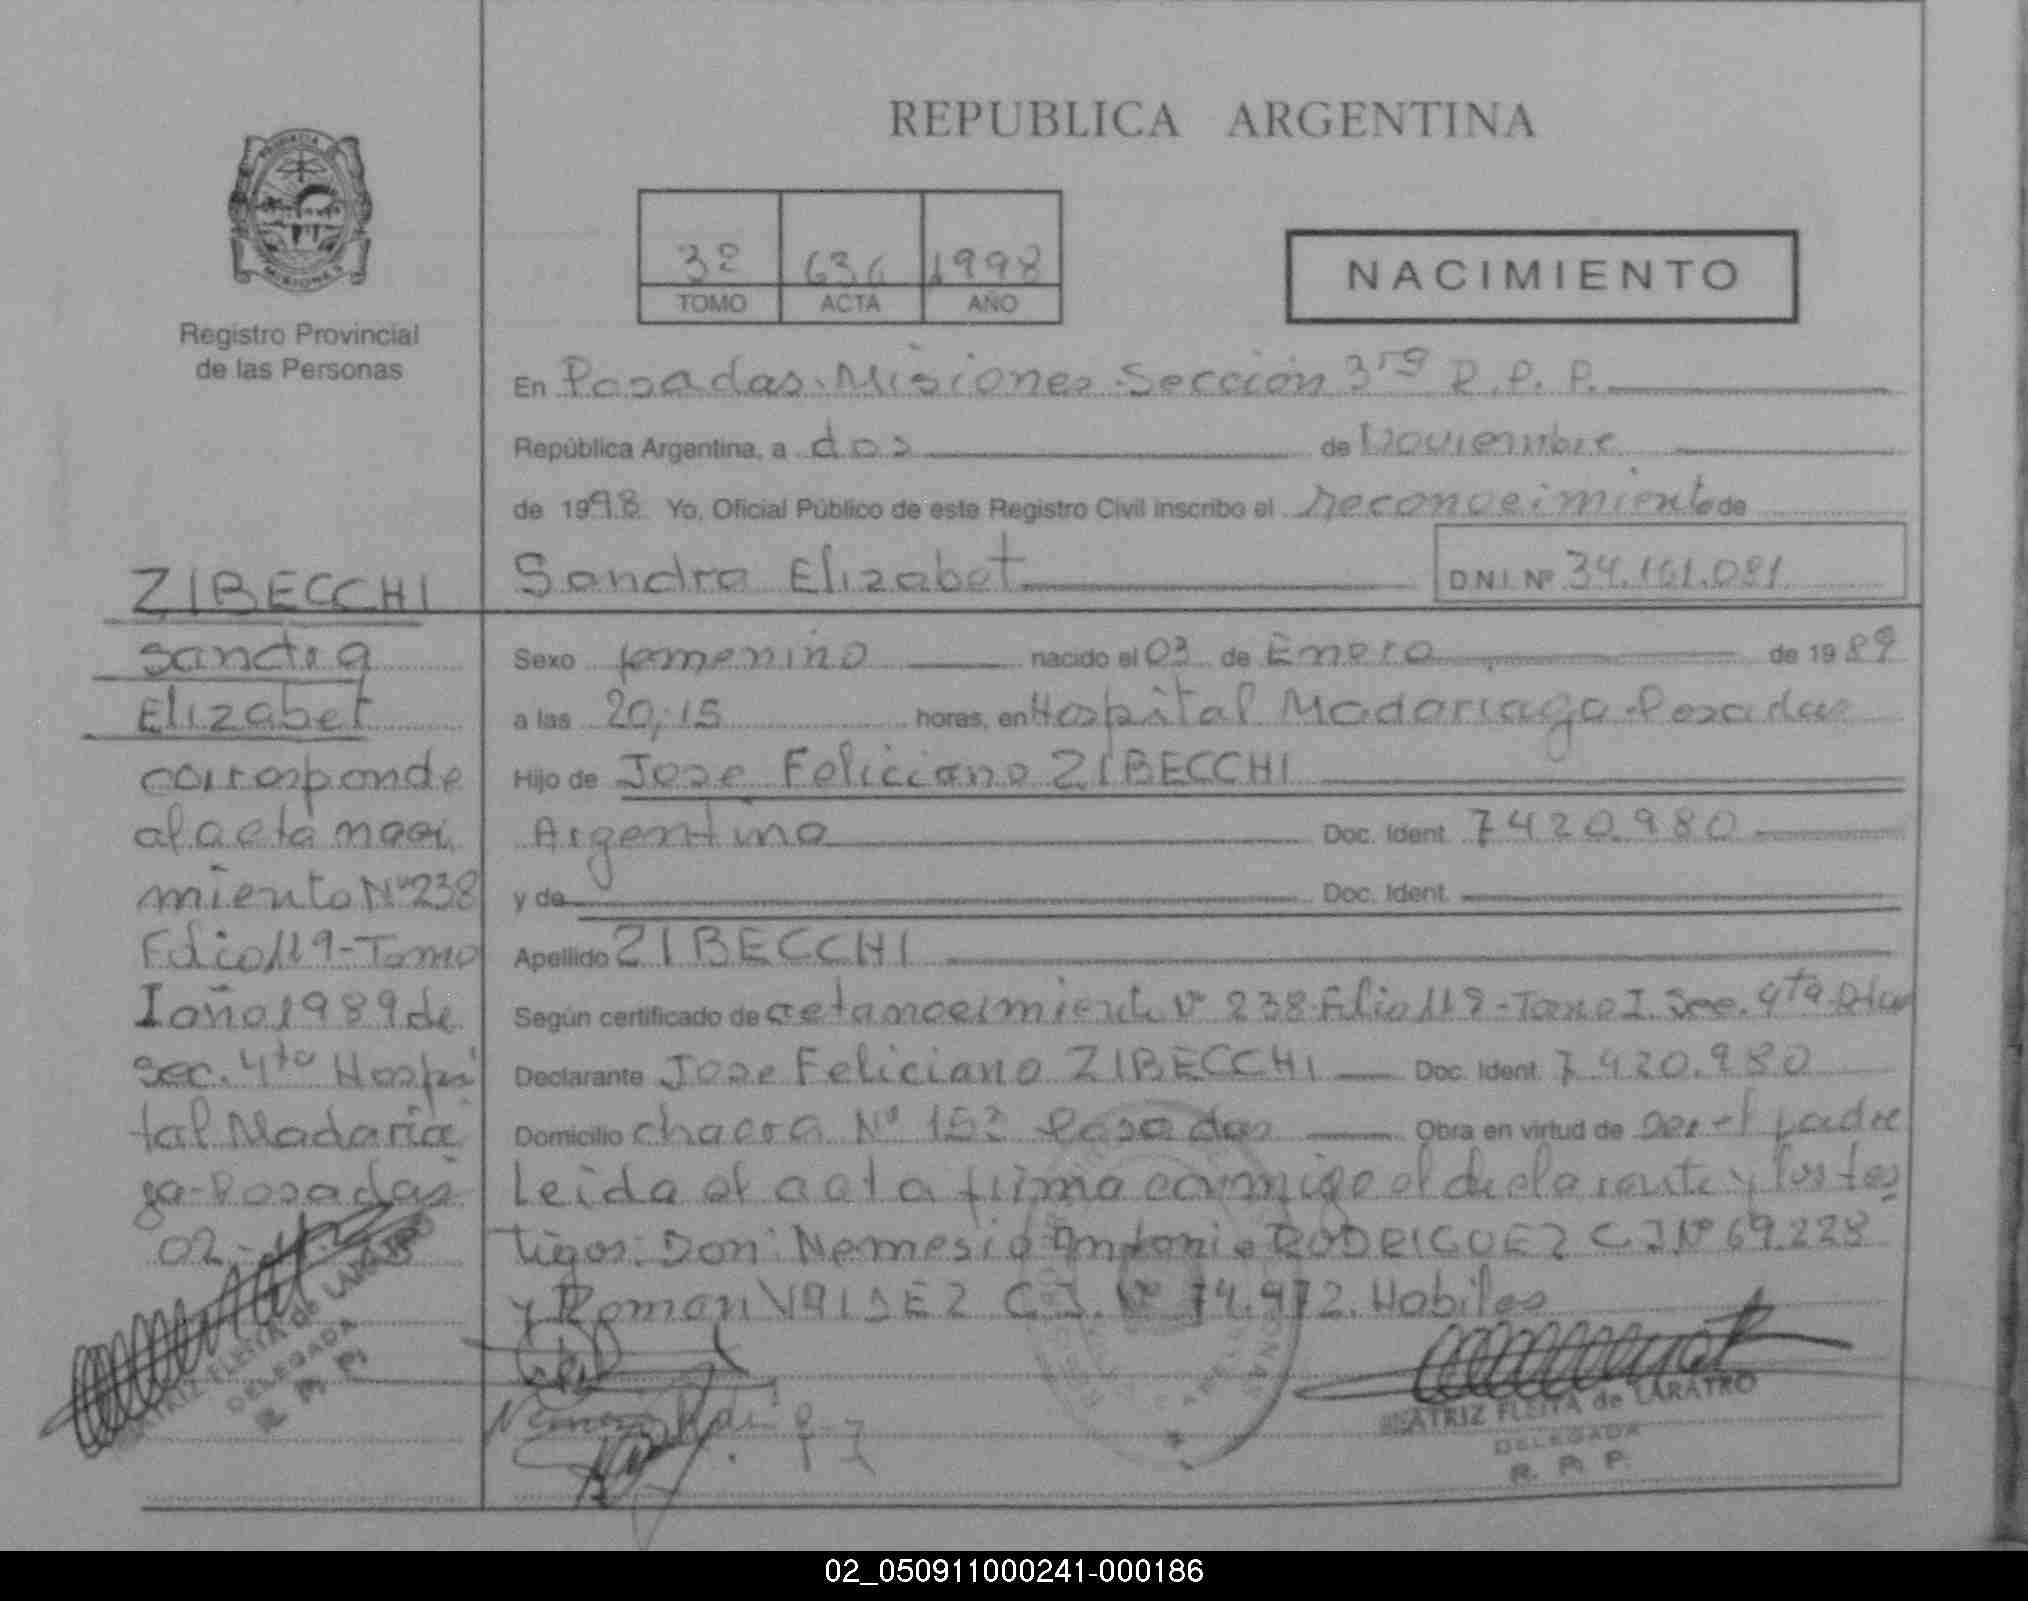 REPUBLICA ARGENTINA
PROVINCIA
MISIONES
Registro Provincial
de las Personas
32 636 1998
TOMO ACTA AÑO
NACIMIENTO
En Posadas. Misiones. Sección 3ra R.P.P.
República Argentina, a dos de Noviembre
de 1998 Yo, Oficial Público de este Registro Civil inscribo el reconocimiento de
Sandra Elizabet D.N.I. Nº 34.161.081
Sexo femenino nacido el 03 de Enero de 1989
a las 20,15 horas, en Hospital Madariaga-Posadas
Hijo de Jose Feliciano ZIBECCHI
Argentino Doc. Ident. 7420.980
y de Doc. Ident.
Apellido ZIBECCHI
Según certificado de acta nacimiento Nº 238-Folio 119-Tomo I. Sec. 4ta
Declarante Jose Feliciano ZIBECCHI Doc. Ident. 7.420.980
Domicilio chacra Nº 152 Posadas Obra en virtud de ser el padre
Leida el acta firma conmigo el declarante y los tes
tigos: Don: Nemesio Antonio RODRIGUEZ C I Nº 69.228
y Roman VALDEZ C.I. Nº 74.972. Habiles
BEATRIZ FLEITA de LARATRO
DELEGADA
R. P. P.
ZIBECCHI
Sandra
Elizabet
corresponde
al acta naci
miento Nº 238
Folio 119-Tomo
I año 1989 de
Sec. 4ta Hospi
tal Madaria
ga-Posadas
02-11-
BEATRIZ FLEITA de LARATRO
DELEGADA
R. P. P.
02_050911000241-000186